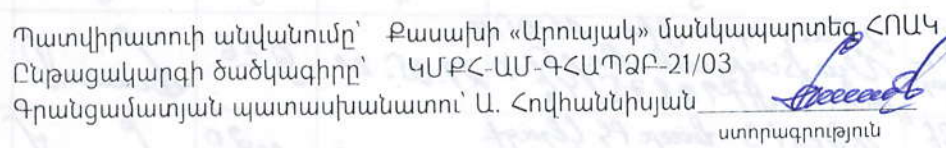 Պատվիրատուի անվանումը՝ Քասախի «Արուսյակ» մանկապարտեզ ՀՈԱԿ
Ընթացակարգի ծածկագիրը՝ ԿՄՔՀ-ԱՄ-ԳՀԱՊՁԲ-21/03
Գրանցամատյան պատասխանատու՝ Ա. Հովհաննիսյան
ստորագրություն